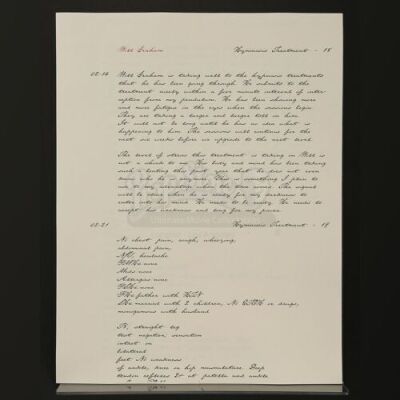 Will Graham Hypnosis Treatment - 18
02-14 Will Graham is taking well to the hypnosis treatments
that he has been going through. He submits to the
treatment easily within a five minute interval of inter
ception from my pendulum. He has been showing more
and more fatigue in the eyes when the sessions begin.
They are taking a larger and larger toll on him.
It will not be long until he has no idea what is
happening to him. The sessions will continue for the
next six weeks before we upgrade to the next level.
The level of stress this treatment is taking on Will is
not a shock to me. His body and mind has been taking
such a beating this past year that he does not even
know who he is anymore. This is something I plan to
use to my advantage when the time comes. The signal
will be clear when he is ready for my darkness to
enter into his mind. He needs to be ready. He needs to
accept his weakness and long for my power.
02-21 Hypnosis Treatment - 19
No chest pain, cough, wheezing,
abdominal pain,
headache
none
Meds none
Allergies none
none
father with
married with 2 children, No drugs,
monogamous with husband
straight leg
test negative, sensation
intact on
bilateral
feet No weakness
of ankle, knee or hip musculature. Deep
tendon reflexes 2+ at patella and ankle